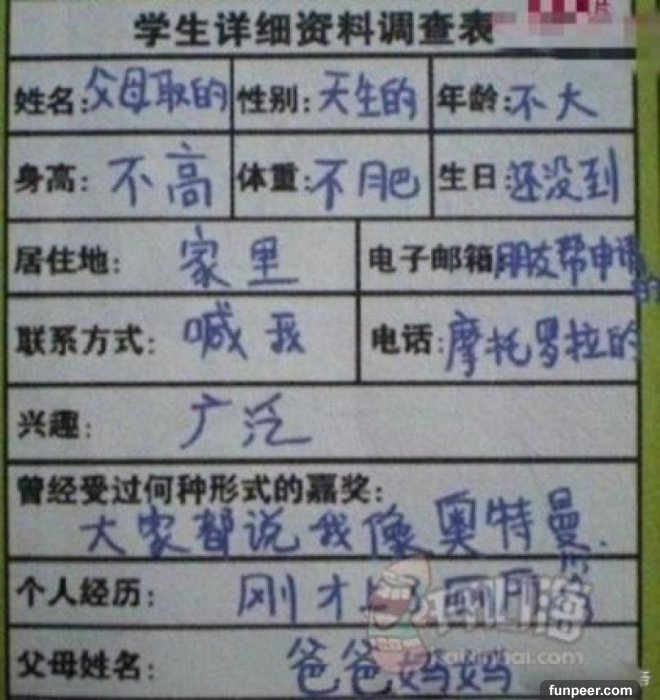 学生详细资料调查表
片
姓名:父母取的 性别:天生的 年龄:不大
身高:不高 体重:不肥 生日:还没到
居住地:家里 电子邮箱朋友帮申请的
联系方式:喊我 电话:摩托罗拉的
兴趣:广泛
曾经受过何种形式的嘉奖:
大家都说我像奥特曼.
个人经历:刚才上了厕所
父母姓名:爸爸妈妈
开心海
kaixinhai.com
funpeer.com